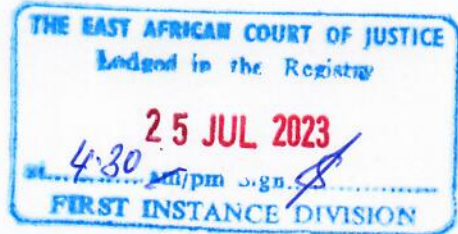 THE EAST AFRICAN COURT OF JUSTICE
Lodged in the Registry
25 JUL 2023
at....4:30 am/pm Sign...............
FIRST INSTANCE DIVISION